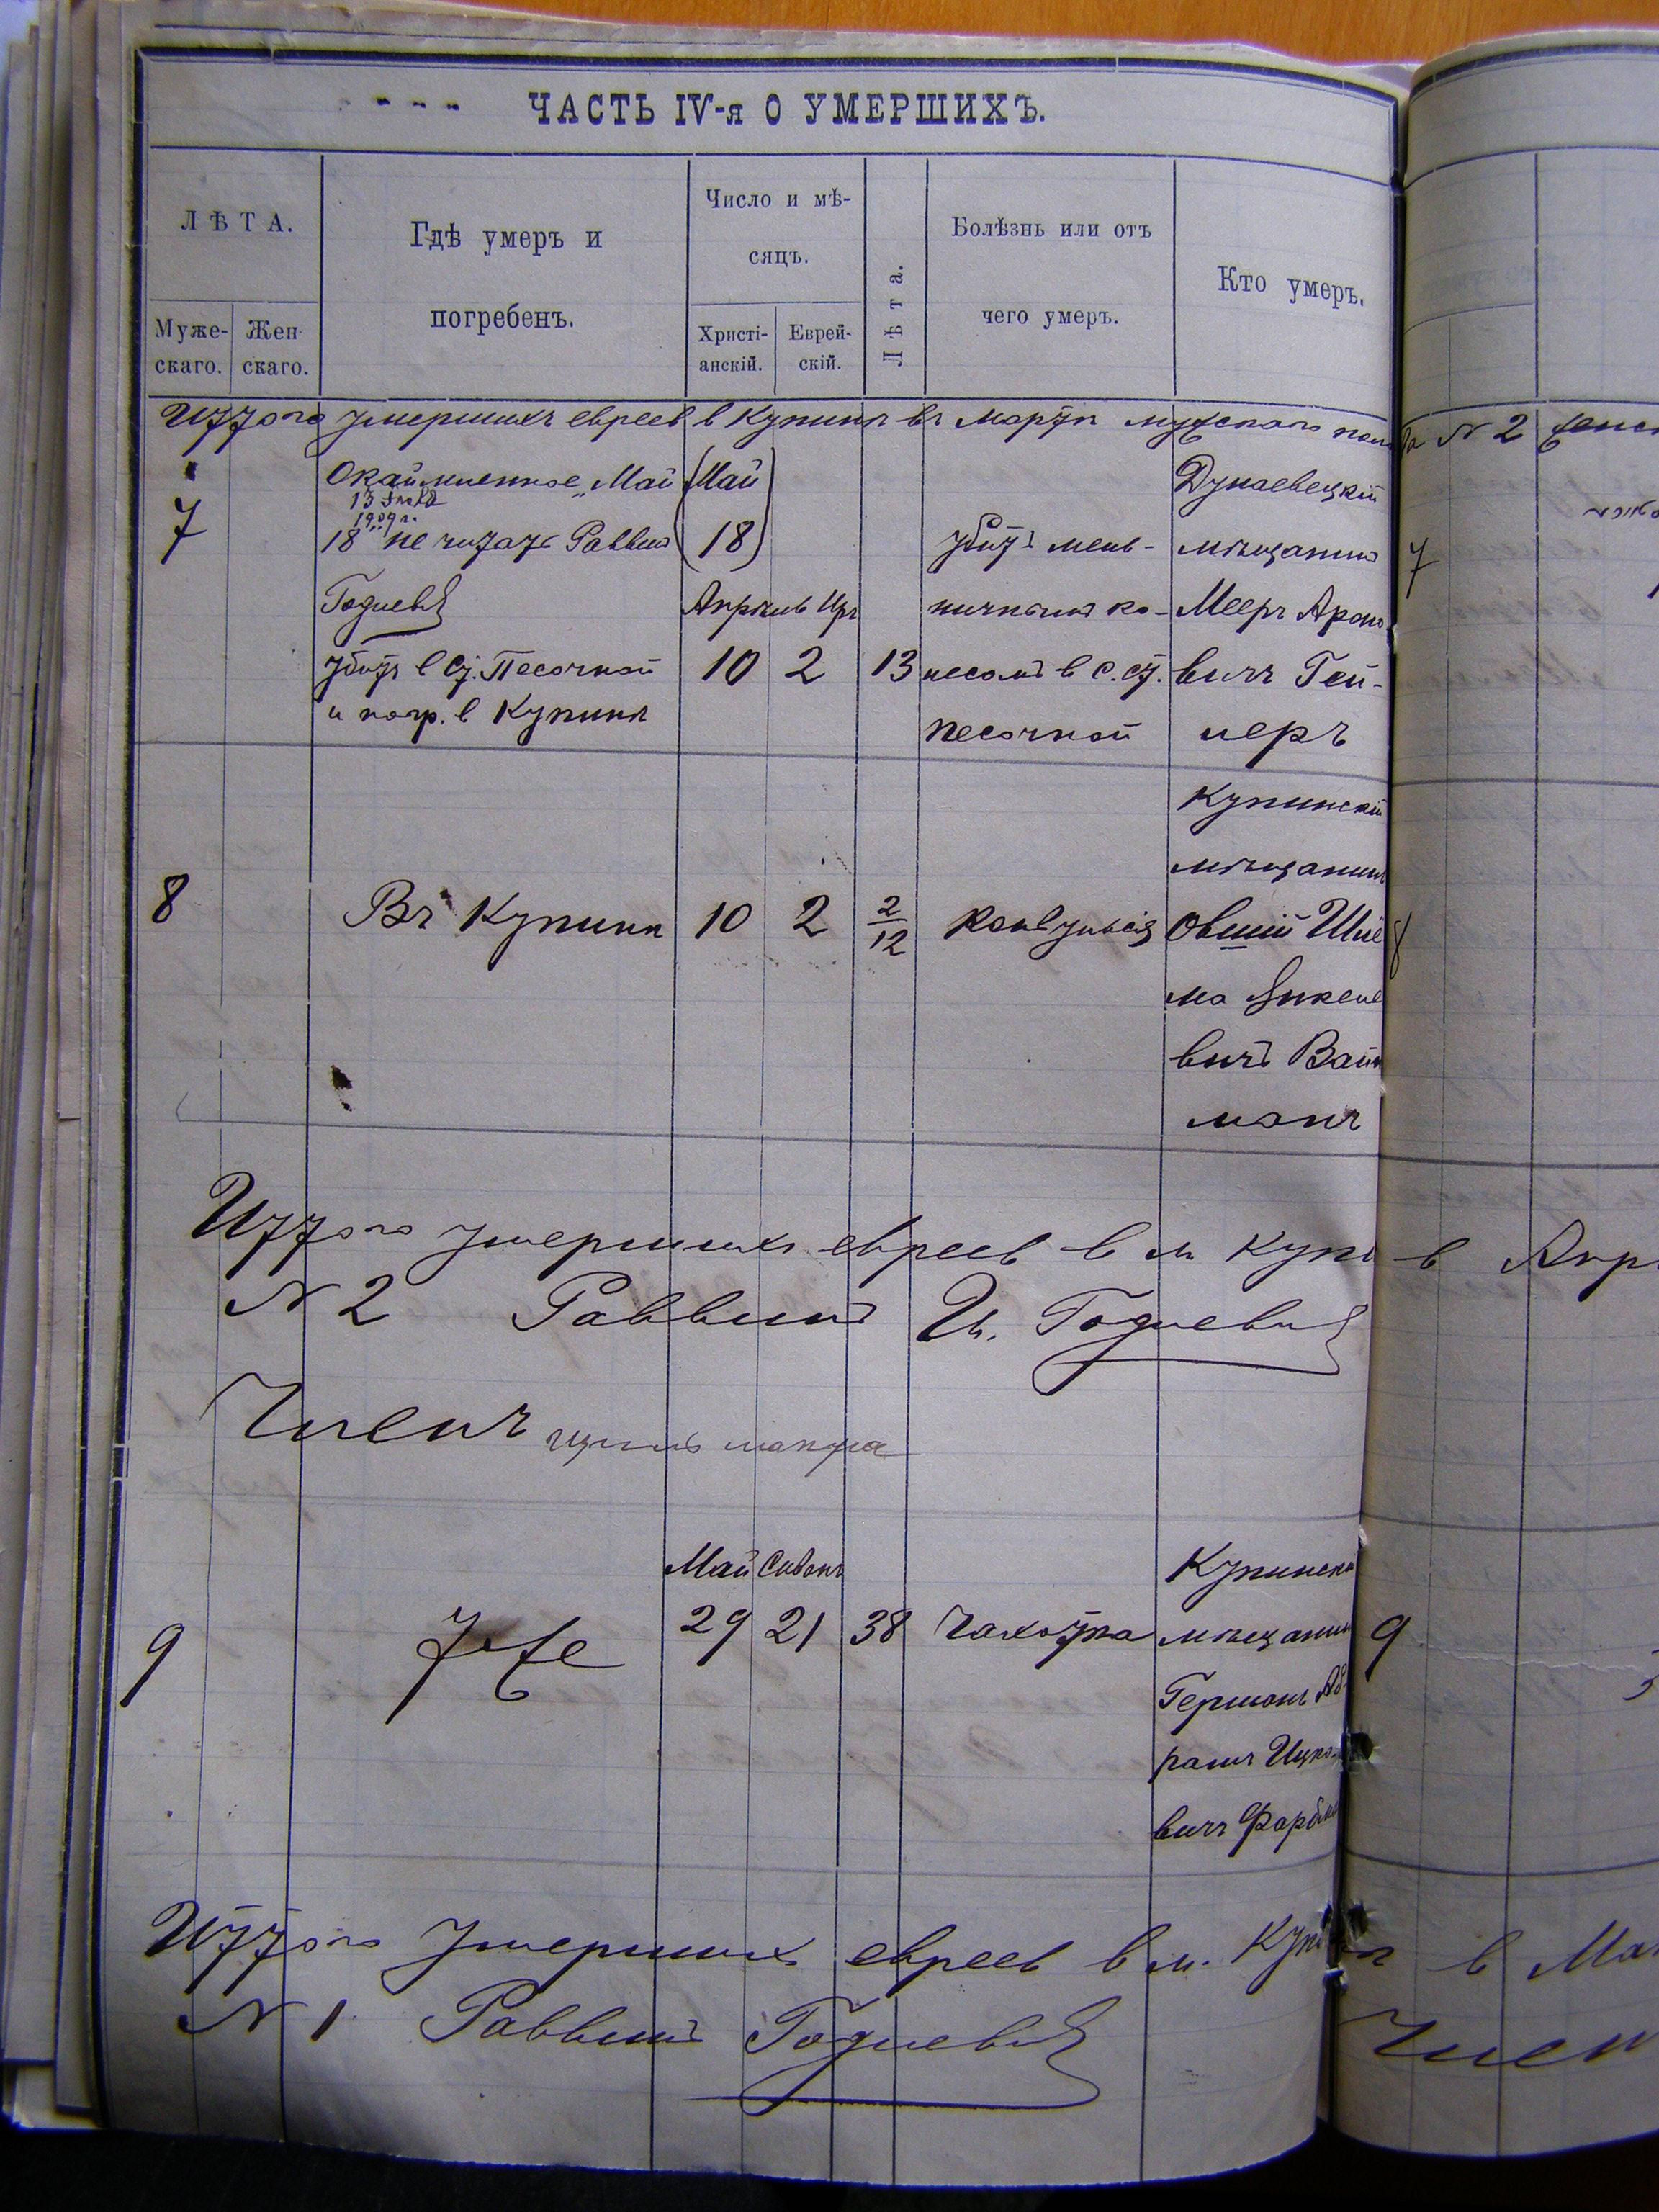 ЧАСТЬ IV-я О УМЕРШИХЪ.
ЛѢТА.
Муже-
скаго.
Жен-
скаго.
Гдѣ умеръ и
погребенъ.
Число и мѣ-
сяцъ.
Христі-
анскій.
Еврей-
скій.
Лѣта.
Болѣзнь или отъ
чего умеръ.
Кто умеръ.
Итого умершихъ евреев в Купинѣ въ Мартѣ мужскаго пола № 2
7
Окаймленное „Май
13
1909 г.
18" не читать Раввинъ
Годиевич
убитъ в с. Песочной
и погр. в Купинѣ
(Май
18)
Апрѣль Ияр
10 2 13
убитъ мель-
ничнымъ ко-
лесомъ в с.
Песочной
Дунаевецкій
мѣщанинъ
Мееръ Ароно
вичъ Гей-
леръ
7
8
Въ Купинѣ
10 2 2/12
Конвульсія
Купинскій
мѣщанинъ
Овшій Шлё
ма Янкеле
вичъ Вайн
манъ
8
Итого умершихъ евреев в м. Купи в Апр
№ 2 Раввинъ И. Годиевич
Членъ
9
Тоже
Май Сиванъ
29 21 38 Чахотка
Купински
мѣщанин
Гершонъ Аб-
рамъ Ицко-
вичъ
9
Итого умершихъ евреев в м. Купинѣ в Ма
№ 1 Раввинъ Годиевич
Член